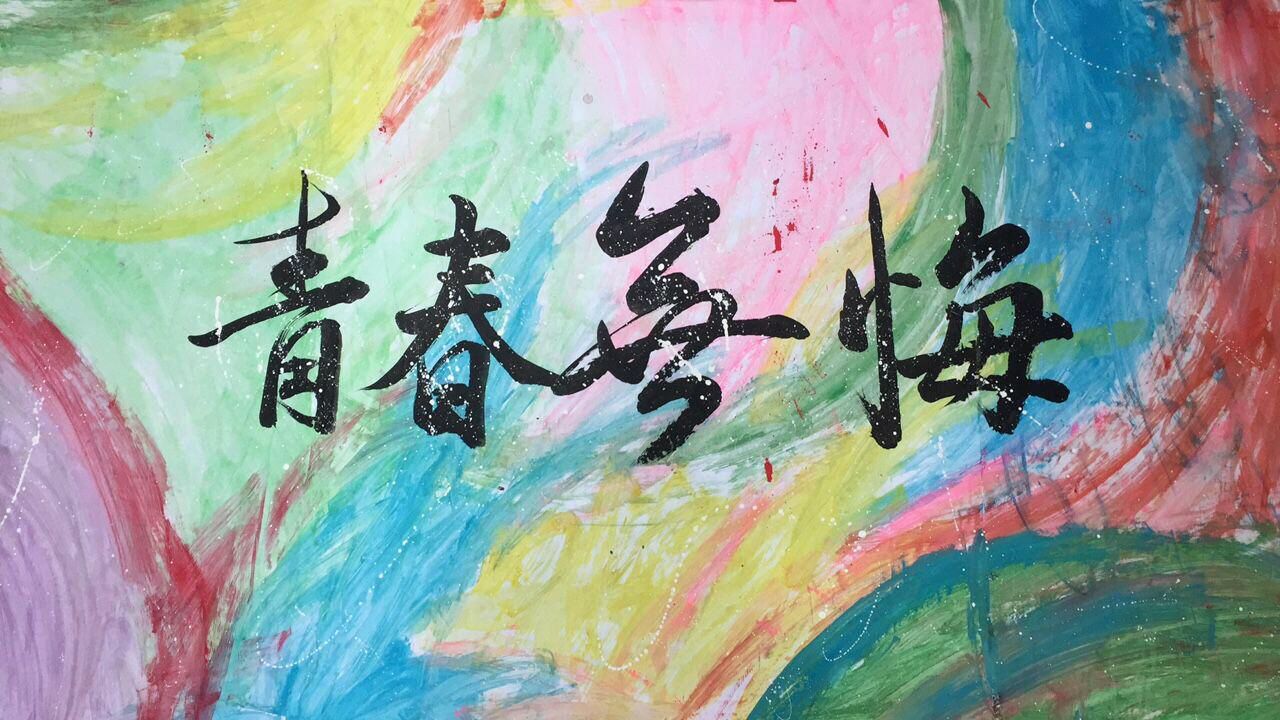 青春無悔